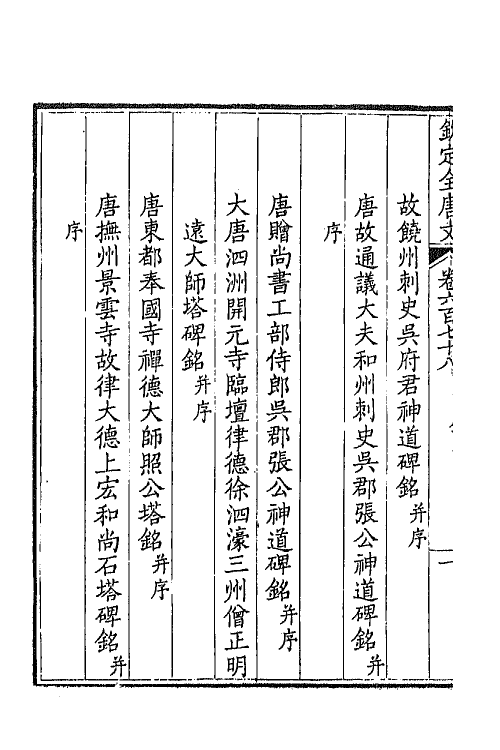 欽定全唐文 卷六百七十八 一
故饒州刺史吳府君神道碑銘 并序
唐故通議大夫和州刺史吳郡張公神道碑銘 并
序
唐贈尚書工部侍郎吳郡張公神道碑銘 并序
大唐泗洲開元寺臨壇律德徐泗濠三州僧正明
遠大師塔碑銘 并序
唐東都奉國寺禪德大師照公塔銘 并序
唐撫州景雲寺故律大德上宏和尚石塔碑銘 并
序